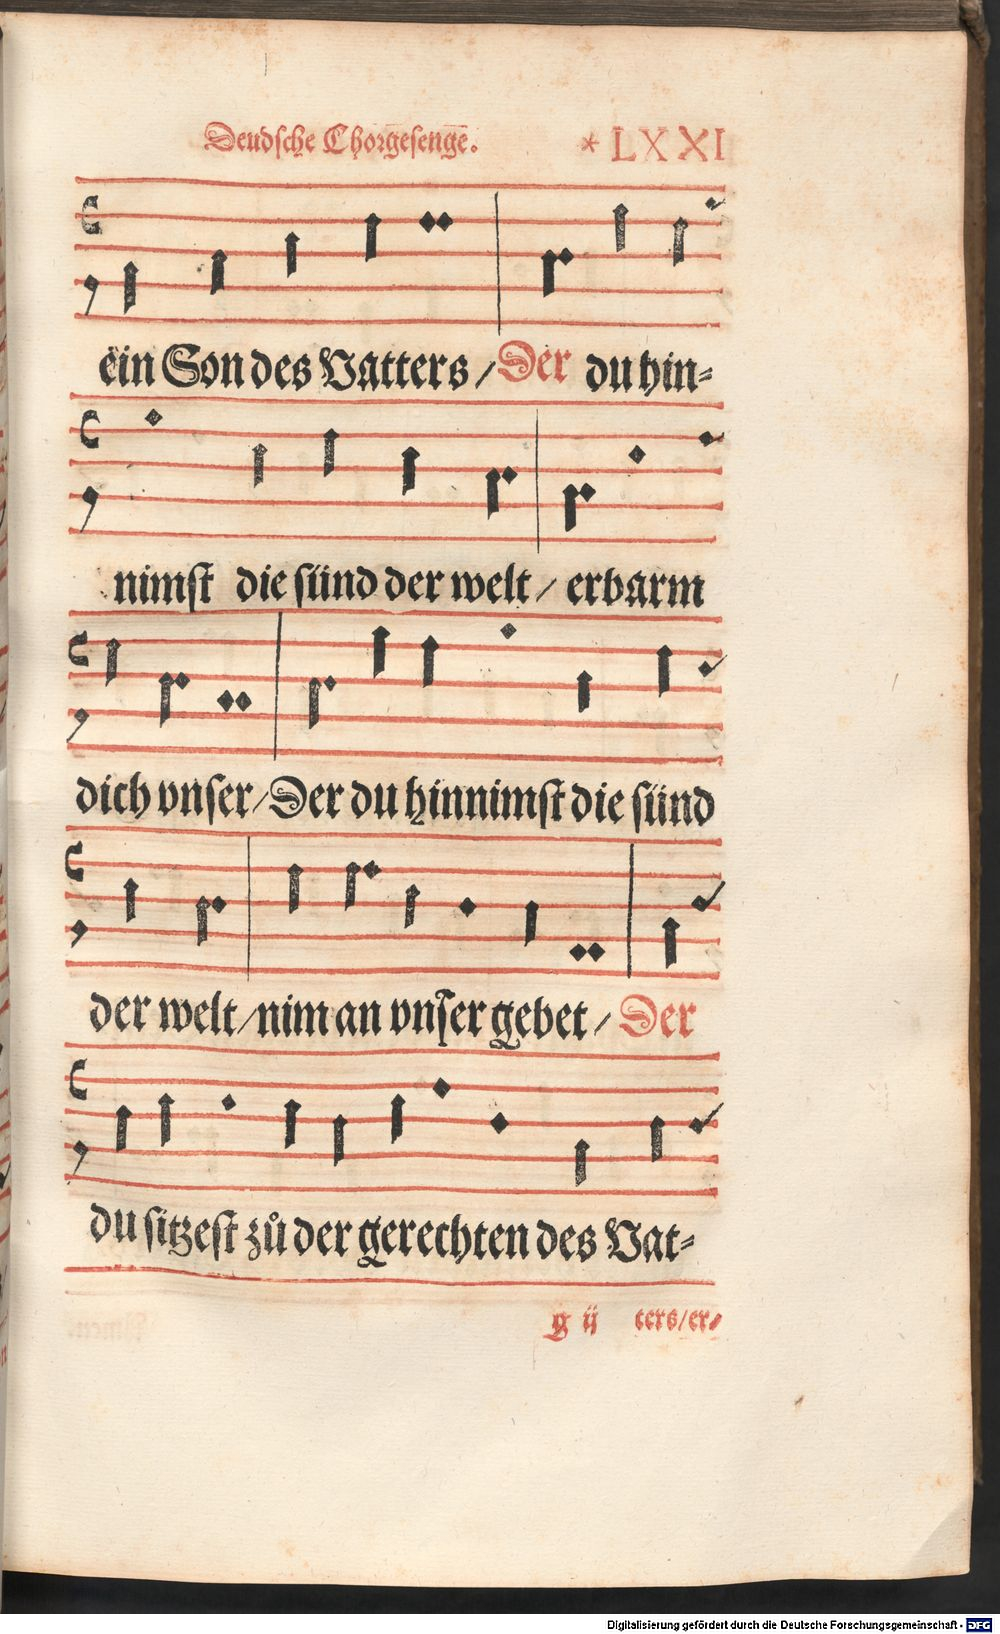 Deudsche Chorgesenge. * LXXI
ein Son des Vatters / Der du hin⸗
nimst die sünd der welt / erbarm
dich vnser / Der du hinnimst die sünd
der welt / nim an vnser gebet / Der
du sitzest zů der gerechten des Vat⸗
g ij ters / er⸗
Digitalisierung gefördert durch die Deutsche Forschungsgemeinschaft - DFG